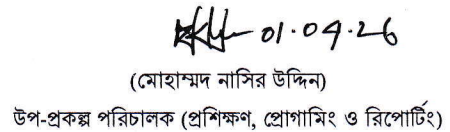 01.04.26
(মোহাম্মদ নাসির উদ্দিন)
উপ-প্রকল্প পরিচালক (প্রশিক্ষণ, প্রোগামিং ও রিপোর্টিং)